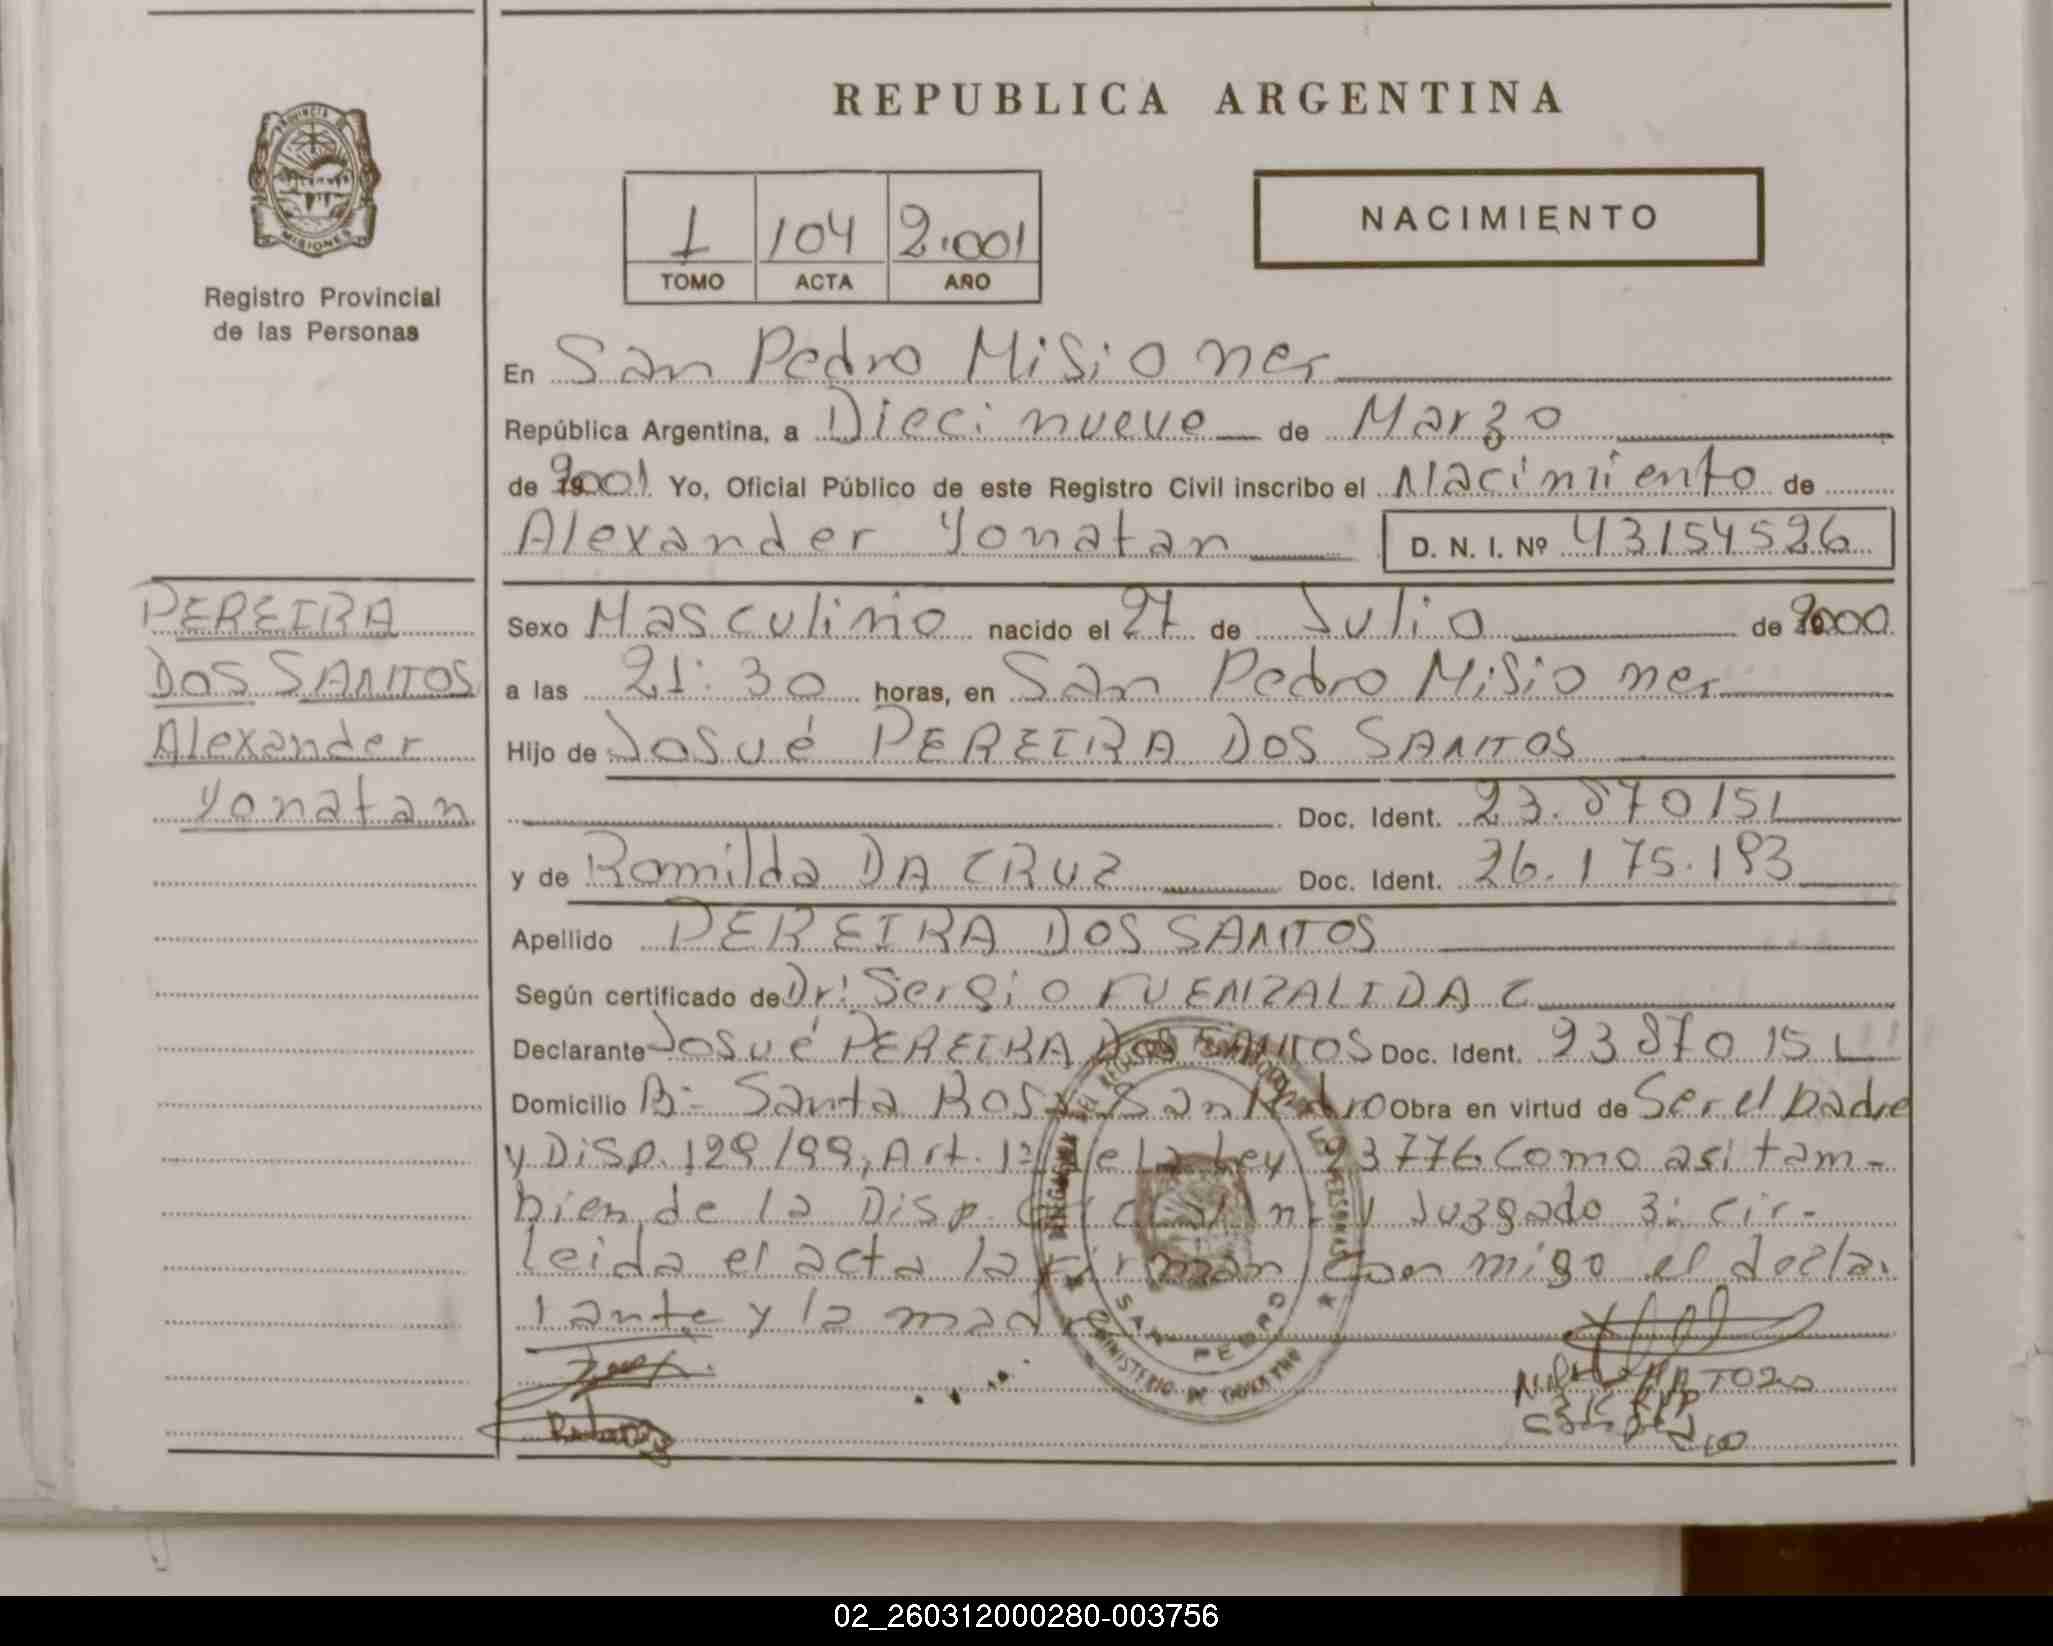 REPUBLICA ARGENTINA
PROVINCIA DE MISIONES
Registro Provincial
de las Personas
1 104 2.001
TOMO ACTA AÑO
NACIMIENTO
En San Pedro Misiones
República Argentina, a Diecinueve de Marzo
de 2001 Yo, Oficial Público de este Registro Civil inscribo el Nacimiento de
Alexander Yonatan D. N. I. Nº 43154526
PEREIRA
DOS SANTOS
Alexander
Yonatan
Sexo Masculino nacido el 27 de Julio de 2000
a las 21:30 horas, en San Pedro Misiones
Hijo de Josué PEREIRA DOS SANTOS
Doc. Ident. 23.870151
y de Romilda DA CRUZ Doc. Ident. 26.175.193
Apellido PEREIRA DOS SANTOS
Según certificado de Dr: Sergio FUENZALIDA C
Declarante Josué PEREIRA DOS SANTOS Doc. Ident. 23 870 151
Domicilio B:- Santa Rosa San Pedro Obra en virtud de Ser el padre
y Disp. 129/99, Art. 1: de la Ley 23776 Como asi tam-
bien de la Disp. Juzgado 3: cir-
leida el acta la firman con migo el decla.
rante y la madre
SAN PEDRO
MINISTERIO DE GOBIERNO
02_260312000280-003756